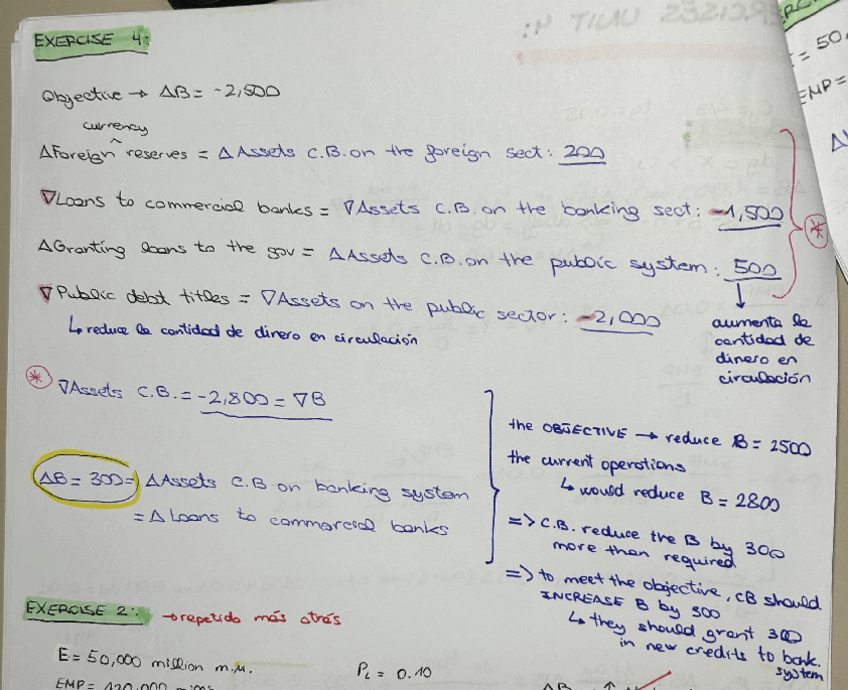 EXERCISE 4:
Objective → ΔB = -2,500
currency
ΔForeign ^ reserves = Δ Assets C.B. on the foreign sect: 200
∇Loans to commercial banks = ∇Assets C.B. on the banking sect: -1,500
ΔGranting loans to the gov = Δ Assets C.B. on the public system: 500
∇Public debt titles = ∇Assets on the public sector: -2,000
↳ reduce la cantidad de dinero en circulación
*
↓
aumenta la
cantidad de
dinero en
circulación
* ∇Assets C.B. = -2,800 = ∇B
ΔB = 300 = ΔAssets C.B on banking system
= Δ Loans to commercial banks
the OBJECTIVE → reduce B = 2500
the current operations
↳ would reduce B = 2800
=> C.B. reduce the B by 300
more than required
=> to meet the objective, CB should
INCREASE B by 300
↳ they should grant 300
in new credits to bank.
system
EXERCISE 2: → repetido más atrás
E = 50,000 million m.u.
P_L = 0.10
ERCISES UNIT 4:
= 50,
EMP =